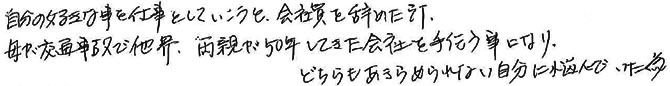 自分の好きな事を仕事としていこうと、会社員を辞めた訳、
母が交通事故で他界、両親が50年してきた会社を手伝う事になり、
どちらもあきらめられない自分に悩んでいた為